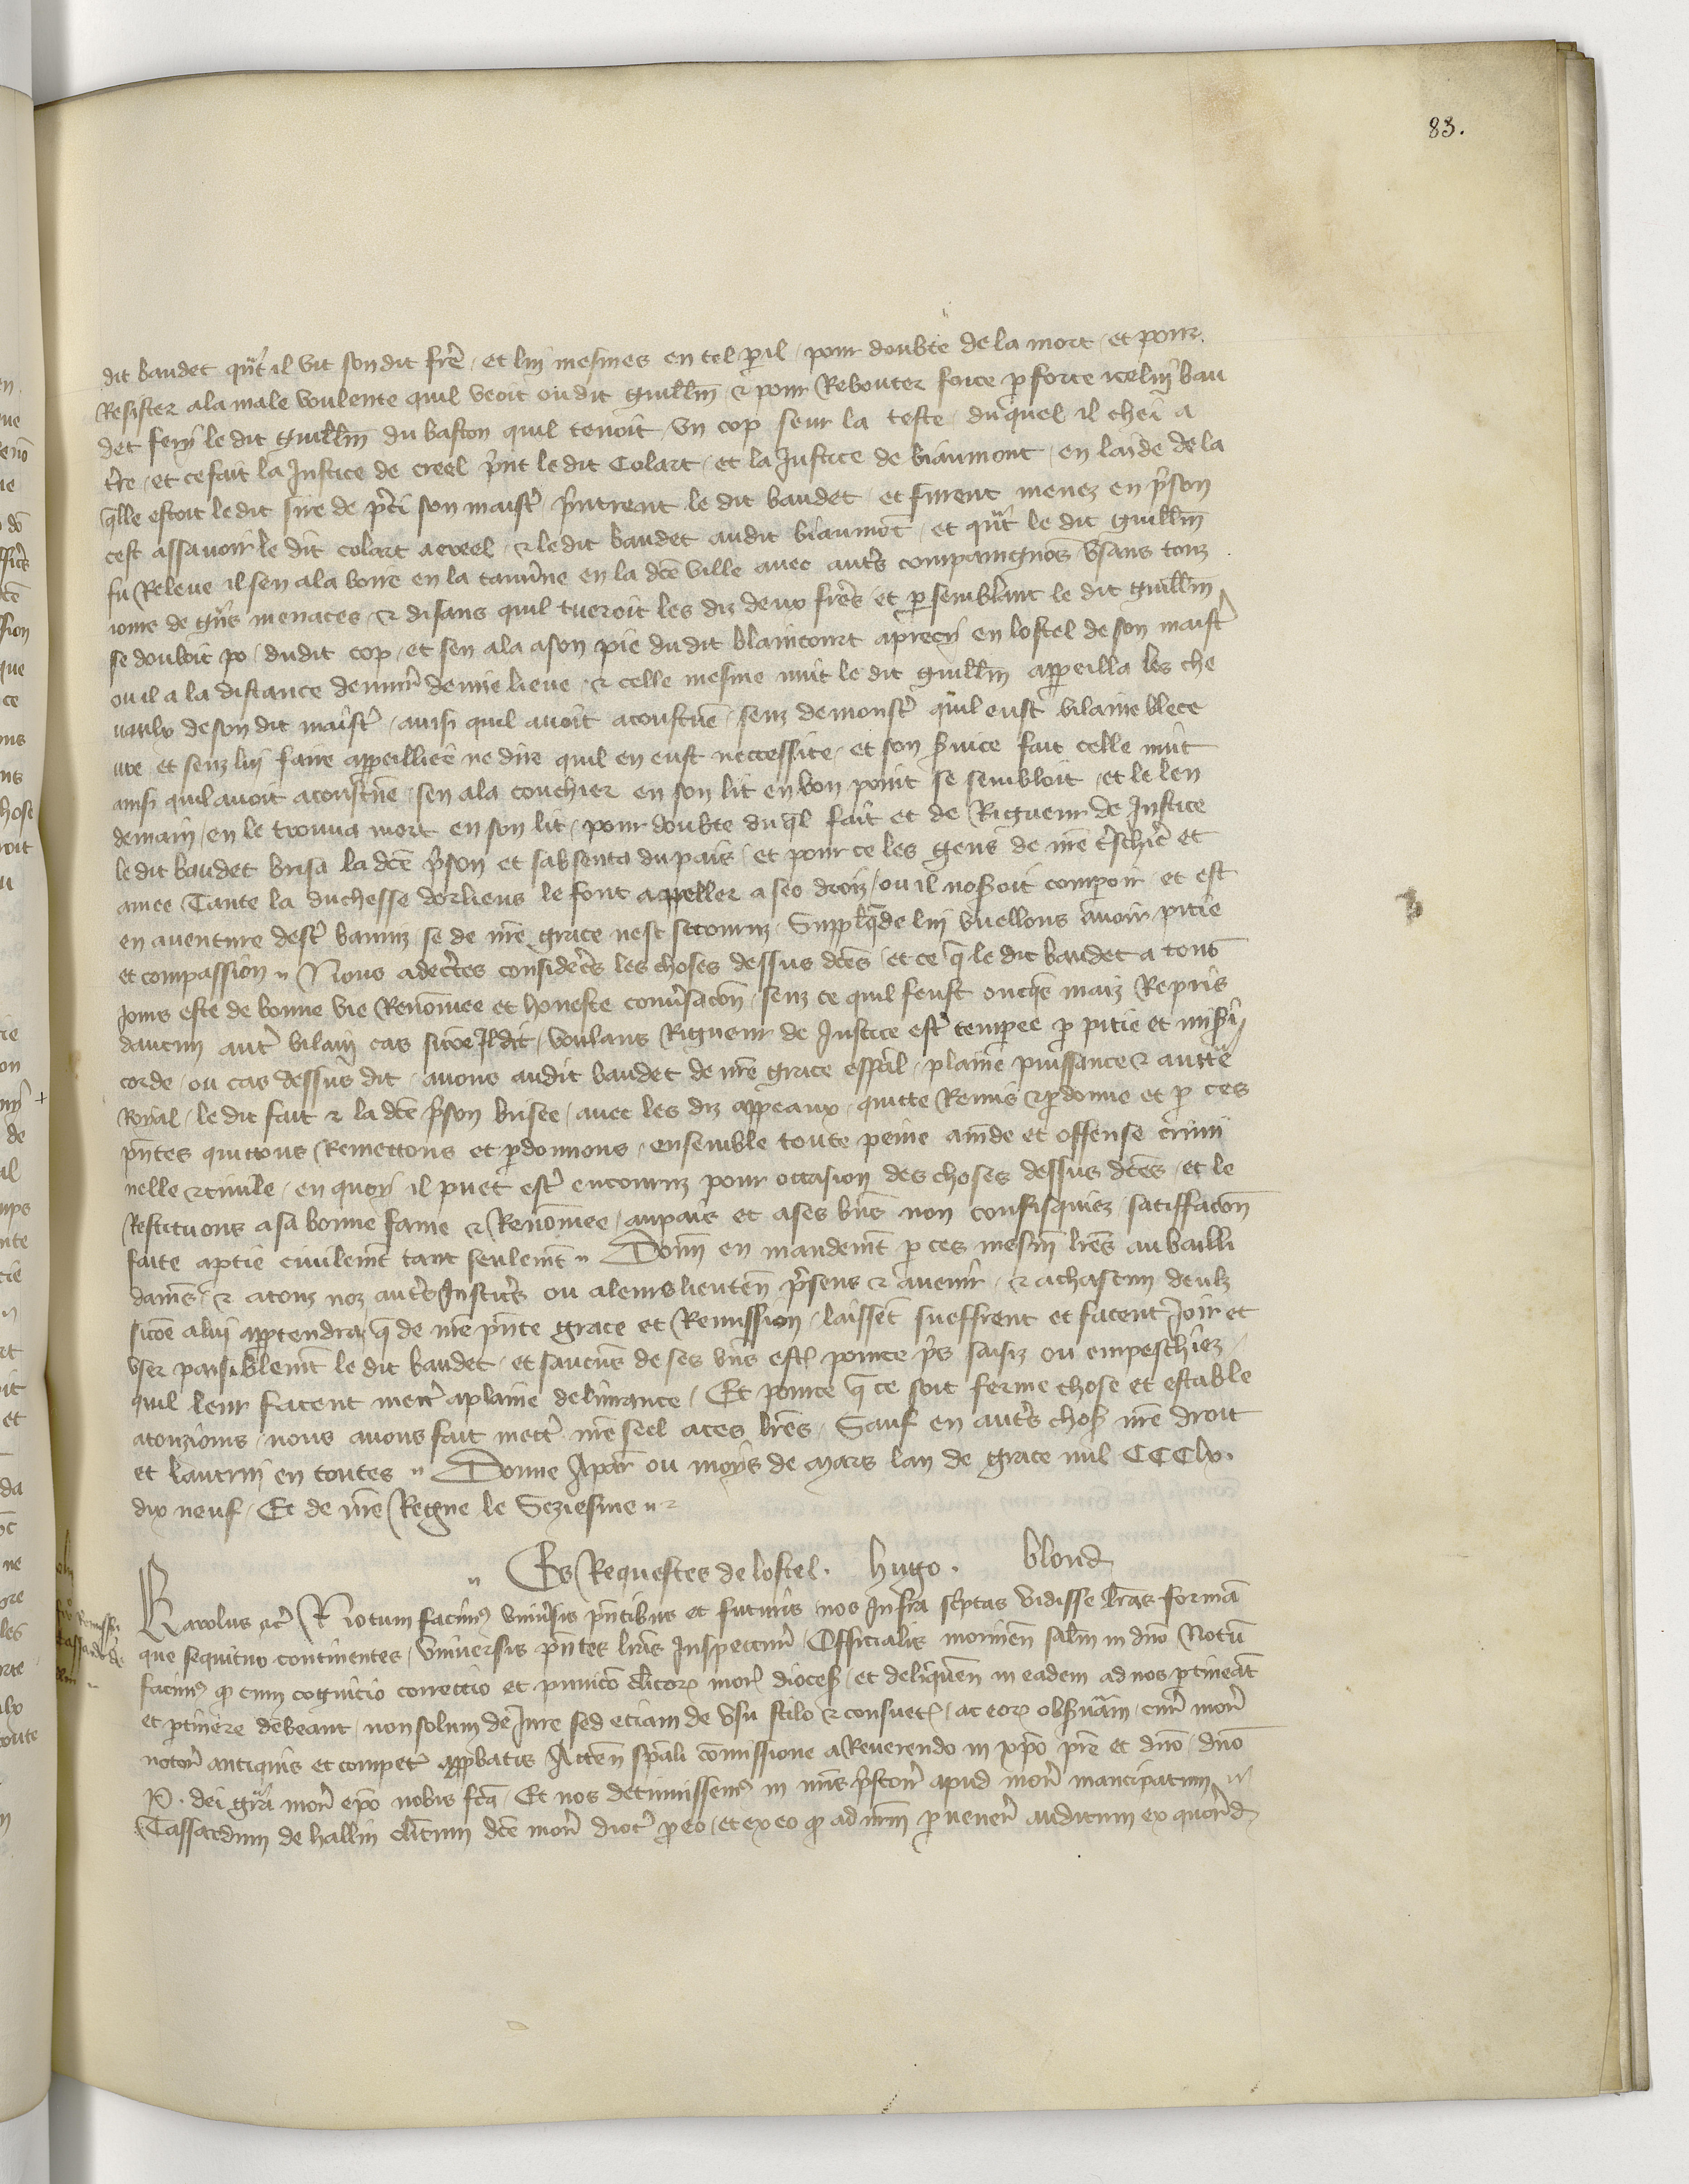 83.
dit baudet qñt il vit sondit frẽ et lui mesmes en tel peril pour doubte de la mort et pour
Resister a la male voulente quil veoit oudit guillm̃ & pour Rebouter force p force icelui bau
det feri le dit guillm̃ du baston quil tenoit un cop seur la teste duquel il chei a
tr̃e et ce fait la Justice de creel prĩst le dit Colart et la Justice de biaumont en laide de la
qlle estoit le dit sire de son maistr̃ prĩtrent le dit baudet et furent menez en prĩson
cest assavoir le dit colart a creel & le dit baudet audit biaumõt et qñt le dit guillm̃
fu Releve il sen ala boire en la tavr̃ne en la dcẽ ville avec autr̃s compaingnõs usans touz
iours de grñs menaces & disans quil tueroit les diz deux frẽrs et p semblant le dit guillm̃
se douloit po dudit cop et sen ala a son pie dudit blaincourt a precy en lostel de son maistr̃
ou il a la distance denvirõ demie lieue & celle mesme nuit le dit guillm̃ appeilla les che
vaulx de son dit maistr̃ ainsi quil avoit acoustumẽ senz demonstr̃ quil eust vilaine blece
ure et senz lui faire appeillier ne dire quil en eust neccessite et son sr̃vice fait celle nuit
ainsi quil avoit acoustumẽ sen ala couchier en son lit en bon point se sembloit et le len
demain en le trouva mort en son lit pour doubte du ql̃ fait et de Rigueur de Justice
le dit baudet brisa la dcẽ prĩson et sabsenta du pais et pour ce les gens de nr̃e tr̃schiẽr et
amee Tante la duchesse dorliens le font appeller a ses droiz ou il noseroit compoir et est
en aventure destr̃ banniz se de nr̃e grace nest secouruz Suppliãt que de lui vuellons avoir pitie
et compassion Nous adectes considerẽs les choses dessus dcẽs et ce q̃ le dit baudet a touz
jours este de bonne vie Renõmee et honeste conv̾sacõn senz ce quil feust oncq̃s maiz Repris
daucun autr̃ vilain cas sicõe Il dit voulans Rigueur de Justice estr̃ tempee p pitie et miseri
corde ou cas dessus dit avons audit baudet de nr̃e grace esp̃al plaine puissance & auctẽ
Royal le dit fait & la dcẽ prĩson brisee avec les diz appeaux quitte Remis & pdonne et p ces
pñtes quittons Remettons et pdonnons ensemble toute peine amẽde et offense crimi
nelle & civile en quoy il puet estr̃ encouruz pour occasion des choses dessus dcẽs et le
Restituons a sa bonne fame & Renõmee au pais et a ses bñs non confisquiez satiffacõn
faite a ptie civilemẽt tant seulemẽt Donñ en mandemẽt p ces mesm̃ lr̃es au bailli
damiẽs & a touz noz autr̃s Justicẽrs ou a leurs lieuteñ pr̃sens & avenir & a chascun deulz
sicõe a lui apptendra q̃ de nr̃e pñte grace et Remission laissẽt sueffrent et facent Joir et
user paisiblemẽt le dit baudet et saucũs de ses bñs estẽ pource pr̃s saisiz ou empeschiez
quil leur facent mettr̃ a plaine delivrance Et pource q̃ ce soit ferme chose et estable
a touziours nous avons fait mettr̃ nr̃e seel a ces lr̃es Sauf en autr̃s choses nr̃e droit
et lautrui en toutes Donne A par̃ ou moys de Mars lan de grace mil CCCLx.
dix neuf Et de nr̃e Regne le Seziesme
Es Requestes de lostel. hugo. blond
Karolus &c̃ Notum facim⁹ univ̾sis pñtibus et futuris nos Infra scriptas vidisse lr̃as formã
que sequitur continentes Universis pñtes lr̃as Inspecturis Officialis morineñ salm̃ in dño Notũ
facim⁹ q cum cognicio correctio et punicõ clĩcorum moriñ dioces̃ et delinqueñ in eadem ad nos ptineãt
et ptinere debeant non solum de Jure sed etiam de usu stilo & consuet̃ ac eorum obsr̃vãm curiẽ moriñ
notoriẽ antiquis et competr̃ approbatis Acteñ spãli cõmissione a Reverendo in xpõ pr̃e et dño dño
R. dei grã moriñ epõ nobis fcã Et nos detinuissem⁹ in nr̃is pr̃sonẽ apud moriñ mancipatum
Tassardum de hallin clĩcum dcẽ moriñ dioc̃ p eo et ex eo q ad nr̃m pvenerãt auditum ex quorũd